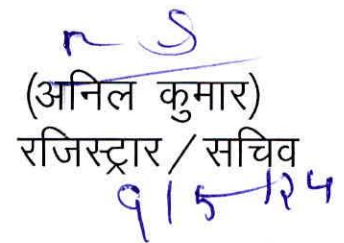 (अनिल कुमार)
रजिस्ट्रार / सचिव
9/5/24